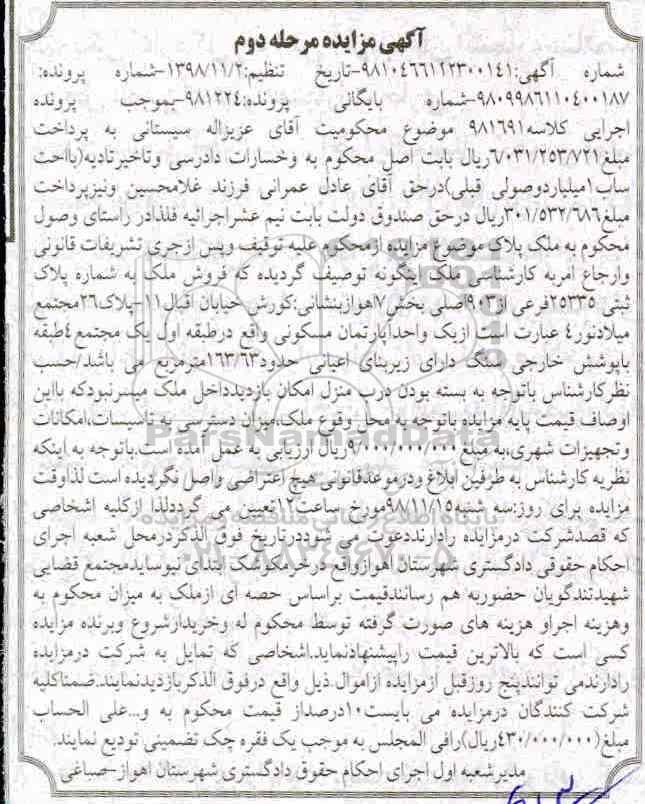 آگهی مزایده مرحله دوم
شماره آگهی:۹۸۱۰۴۶۶۱۱۲۳۰۰۱۴۱-تاریخ تنظیم:۱۳۹۸/۱۱/۲-شماره پرونده:
۹۸۰۹۹۸۶۱۱۰۴۰۰۱۸۷-شماره بایگانی پرونده:۹۸۱۲۲۴-بموجب پرونده
اجرایی کلاسه۹۸۱۶۹۱ موضوع محکومیت آقای عزیزاله سیستانی به پرداخت
مبلغ۶/۰۳۱/۲۵۳/۷۲۱ریال بابت اصل محکوم به وخسارات دادرسی وتاخیرتادیه(بااحت
ساب۱میلیاردوصولی قبلی)درحق آقای عادل عمرانی فرزند غلامحسین ونیزپرداخت
مبلغ۳۰۱/۵۳۲/۶۸۶ریال درحق صندوق دولت بابت نیم عشراجرائیه فلذادر راستای وصول
محکوم به ملک پلاک موضوع مزایده ازمحکوم علیه توقیف وپس ازجری تشریفات قانونی
وارجاع امربه کارشناسی ملک اینگونه توصیف گردیده که فروش ملک به شماره پلاک
ثبتی ۲۵۳۳۵فرعی از۹۰۳اصلی بخش۷اهوازبنشانی:کورش خیابان اقبال۱۱-پلاک۲۶مجتمع
میلادنور۴ عبارت است ازیک واحدآپارتمان مسکونی واقع درطبقه اول یک مجتمع۴طبقه
باپوشش خارجی سنگ دارای زیربنای اعیانی حدود۱۶۳/۶۳مترمربع می باشد/حسب
نظرکارشناس باتوجه به بسته بودن درب منزل امکان بازدیدداخل ملک میسرنبودکه بااین
اوصاف قیمت پایه مزایده باتوجه به محل وقوع ملک،میزان دسترسی و تاسیسات،امکانات
وتجهیزات شهری،به مبلغ۹/۰۰۰/۰۰۰/۰۰۰ریال ارزیابی به عمل آمده است.باتوجه به اینکه
نظریه کارشناس به طرفین ابلاغ ودرموعدقانونی هیچ اعتراضی واصل نگردیده است لذاوقت
مزایده برای روز:سه شنبه۹۸/۱۱/۱۵مورخ ساعت۱۲تعیین می گرددلذا ازکلیه اشخاصی
که قصدشرکت درمزایده رادارنددعوت می شوددرتاریخ فوق الذکردرمحل شعبه اجرای
احکام حقوقی دادگستری شهرستان اهوازواقع درخرمکوشک ابتدای نیوسایدمجتمع قضایی
شهیدتندگویان حضوربه هم رسانندقیمت براساس حصه ای ازملک به میزان محکوم به
وهزینه اجراو هزینه های صورت گرفته توسط محکوم له وخریدارشروع وبرنده مزایده
کسی است که بالاترین قیمت راپیشنهادنماید.اشخاصی که تمایل به شرکت درمزایده
رادارندمی توانندپنج روزقبل ازمزایده ازاموال ذیل واقع درفوق الذکربازدیدنمایند.ضمناکلیه
شرکت کنندگان درمزایده می بایست۱۰درصداز قیمت محکوم به و...علی الحساب
مبلغ(۴۳۰/۰۰۰/۰۰۰ریال)رافی المجلس به موجب یک فقره چک تضمینی تودیع نمایند.
مدیرشعبه اول اجرای احکام حقوق دادگستری شهرستان اهواز-صباغی
ParsNamadData
پایگاه اطلاع رسانی مناقصه و مزایده
۰۲۱-۸۸۳۴۹۶۷۰-۵